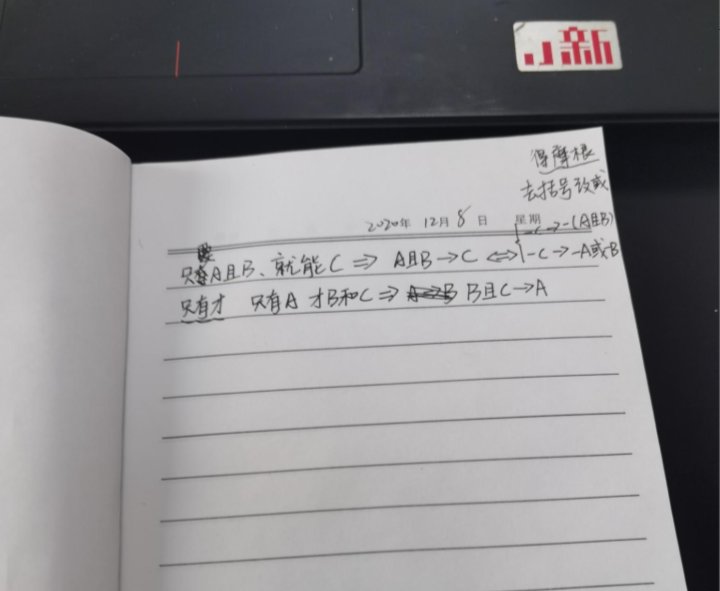 新
得摩根
去括号改或
2020年 12月 8日 星期
-C→-(A且B)
A且B、就能C ⇒ A且B→C ⇔ -C→-A或B
只有才 只有A 才B和C ⇒ B且C→A